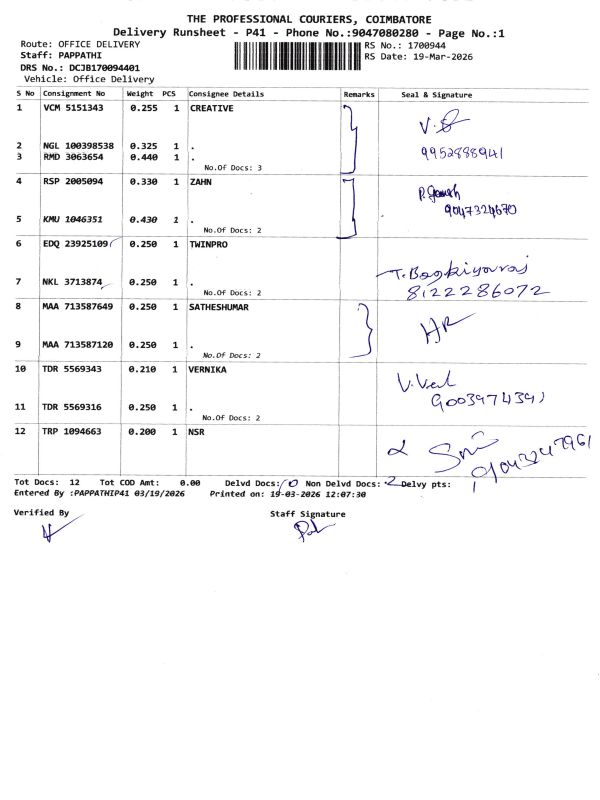 THE PROFESSIONAL COURIERS, COIMBATORE
Delivery Runsheet - P41 - Phone No.:9047080280 - Page No.:1
Route: OFFICE DELIVERY
RS No.: 1700944
Staff: PAPPATHI
RS Date: 19-Mar-2026
DRS No.: DCJB170094401
Vehicle: Office Delivery
S No Consignment No Weight PCS Consignee Details Remarks Seal & Signature
1 VCM 5151343 0.255 1 CREATIVE
2 NGL 100398538 0.325 1 .
9952888941
3 RMD 3063654 0.440 1 .
No.Of Docs: 3
4 RSP 2005094 0.330 1 ZAHN
9047324670
5 KMU 1046351 0.430 1 .
No.Of Docs: 2
6 EDQ 23925109 0.250 1 TWINPRO
7 NKL 3713874 0.250 1 .
T. Bagkiyaraj
8122286072
No.Of Docs: 2
8 MAA 713587649 0.250 1 SATHESHUMAR
HR
9 MAA 713587120 0.250 1 .
No.Of Docs: 2
10 TDR 5569343 0.210 1 VERNIKA
V. Vel
9003974391
11 TDR 5569316 0.250 1 .
No.Of Docs: 2
12 TRP 1094663 0.200 1 NSR
Tot Docs: 12 Tot COD Amt: 0.00 Delvd Docs: 10 Non Delvd Docs: 2 Delvy pts:
Entered By :PAPPATHIP41 03/19/2026 Printed on: 19-03-2026 12:07:30
Verified By Staff Signature